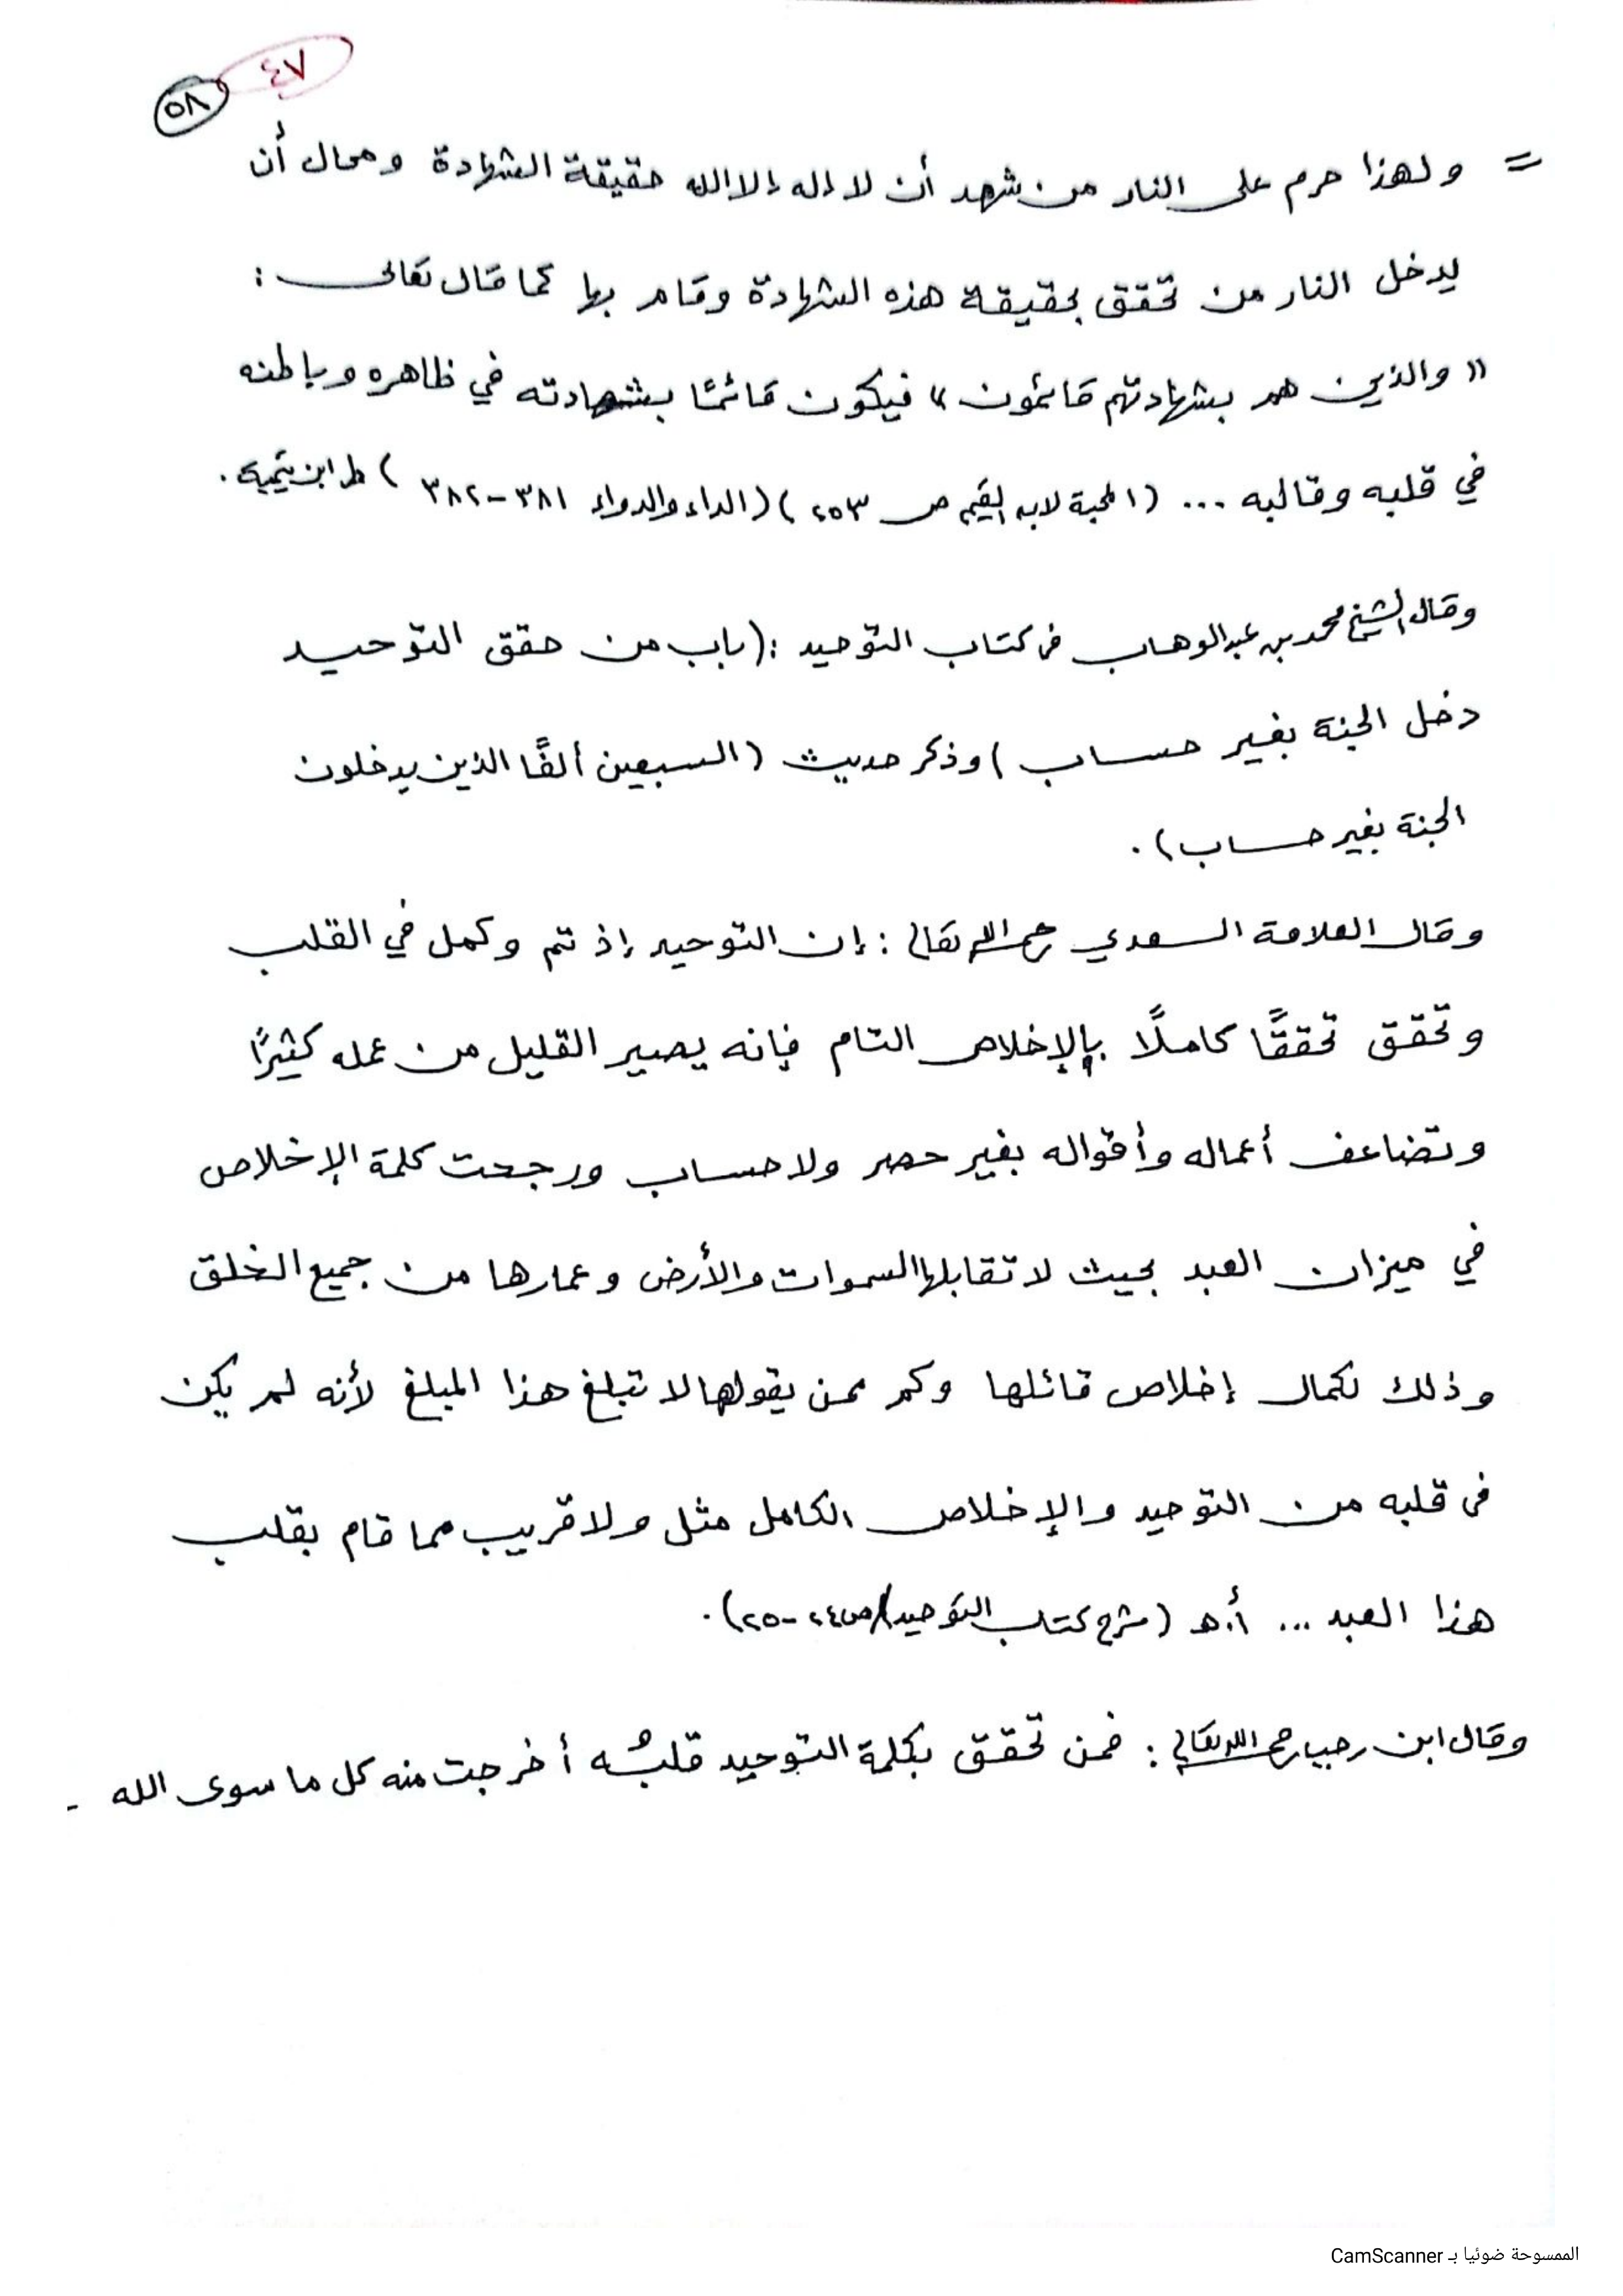 ٤٧
٥٨
= ولهذا حرم على النار من شهد أن لا إله إلا الله حقيقة الشهادة ومحال أن
يدخل النار من تحقق بحقيقة هذه الشهادة وقام بها كما قال تعالى :
« والذين هم بشهادتهم قائمون » فيكون قائمًا بشهادته في ظاهره وباطنه
في قلبه وقالبه ... ( المحبة لابن القيم ص ٢٥٣ ) ( الداء والدواء ٣٨١-٣٨٢ ) ط ابن تيمية .
وقال الشيخ محمد بن عبدالوهاب في كتاب التوحيد : ( باب من حقق التوحيد
دخل الجنة بغير حساب ) وذكر حديث ( السبعين ألفًا الذين يدخلون
الجنة بغير حساب ) .
وقال العلامة السعدي رحمه الله تعالى : إن التوحيد إذ تم وكمل في القلب
وتحقق تحققًا كاملًا بالإخلاص التام فإنه يصير القليل من عمله كثيرًا
وتضاعف أعماله وأقواله بغير حصر ولا حساب ورجحت كلمة الإخلاص
في ميزان العبد بحيث لا تقابلها السموات والأرض وعمارها من جميع الخلق
وذلك لكمال إخلاص قائلها وكم ممن يقولها لا تبلغ هذا المبلغ لأنه لم يكن
في قلبه من التوحيد والإخلاص الكامل مثل ولا قريب مما قام بقلب
هذا العبد ... أ.هـ ( شرح كتاب التوحيد / ص٢٤-٢٥ ) .
وقال ابن رجب رحمه الله تعالى : فمن تحقق بكلمة التوحيد قلبُه أخرجت منه كل ما سوى الله -
الممسوحة ضوئيا بـ CamScanner